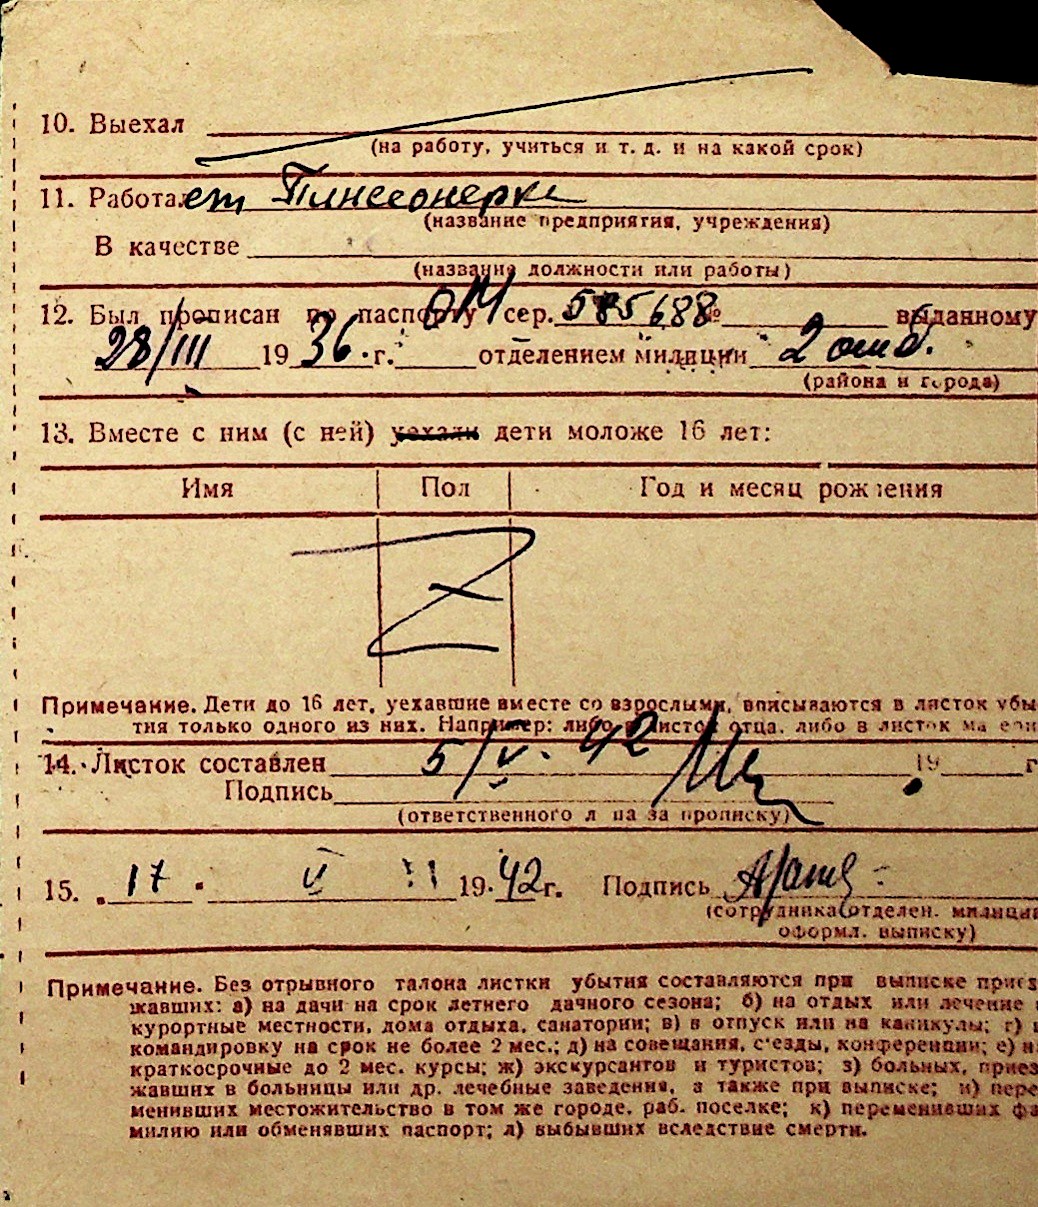 10. Выехал
(на работу, учиться и т. д. и на какой срок)
11. Работает Пинсеонерка
(название предприятия, учреждения)
В качестве
(название должности или работы)
12. Был прописан по паспорту сер. 585688 № выданному
28/III 1936 г. отделением милиции 2 отд.
(района и города)
13. Вместе с ним (с ней) уехали дети моложе 16 лет:
Имя Пол Год и месяц рождения
Z
Примечание. Дети до 16 лет, уехавшие вместе со взрослыми, вписываются в листок убы
тия только одного из них. Например: либо в листок отца, либо в листок ма ери
14. Листок составлен 5/V. 42 19 г
Подпись
(ответственного л ца за прописку)
15. 17. V 1942 г. Подпись
(сотрудника отделен. милиции
оформл. выписку)
Примечание. Без отрывного талона листки убытия составляются при выписке приез
жавших: а) на дачи на срок летнего дачного сезона; б) на отдых или лечение в
курортные местности, дома отдыха, санатории; в) в отпуск или на каникулы; г) в
командировку на срок не более 2 мес.; д) на совещания, с'езды, конференции; е) н
краткосрочные до 2 мес. курсы; ж) экскурсантов и туристов; з) больных, приез
жавших в больницы или др. лечебные заведения, а также при выписке; и) пере
менивших местожительство в том же городе, раб. поселке; к) переменивших фа
милию или обменявших паспорт; л) выбывших вследствие смерти.